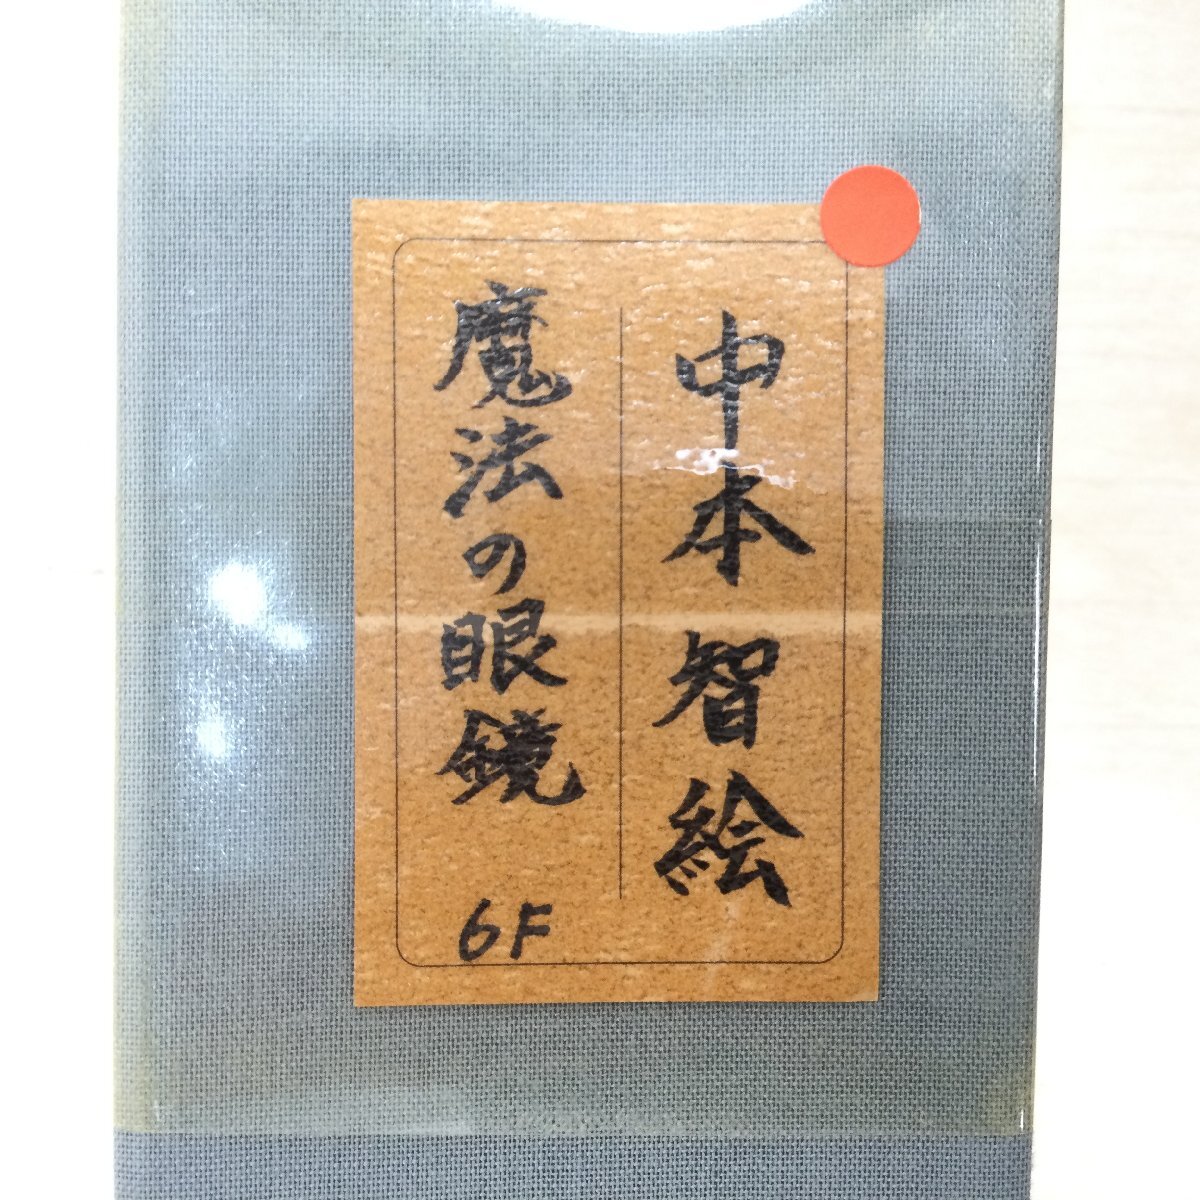 中本智絵
魔法の眼鏡
6F